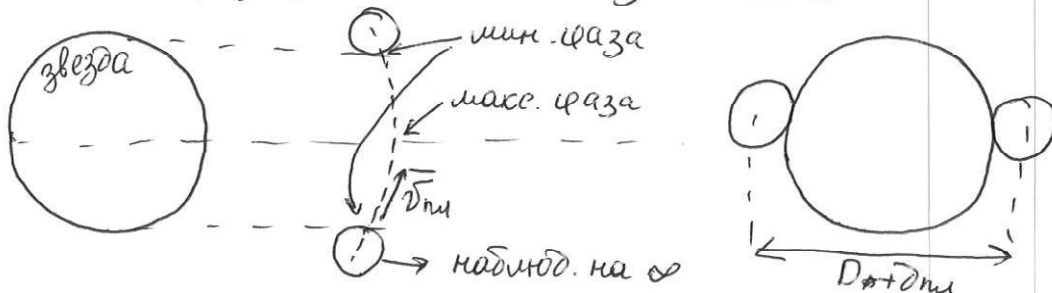 звезда
мин. фаза
макс. фаза
v⃗пл
наблюд. на ∞
D*+dпл